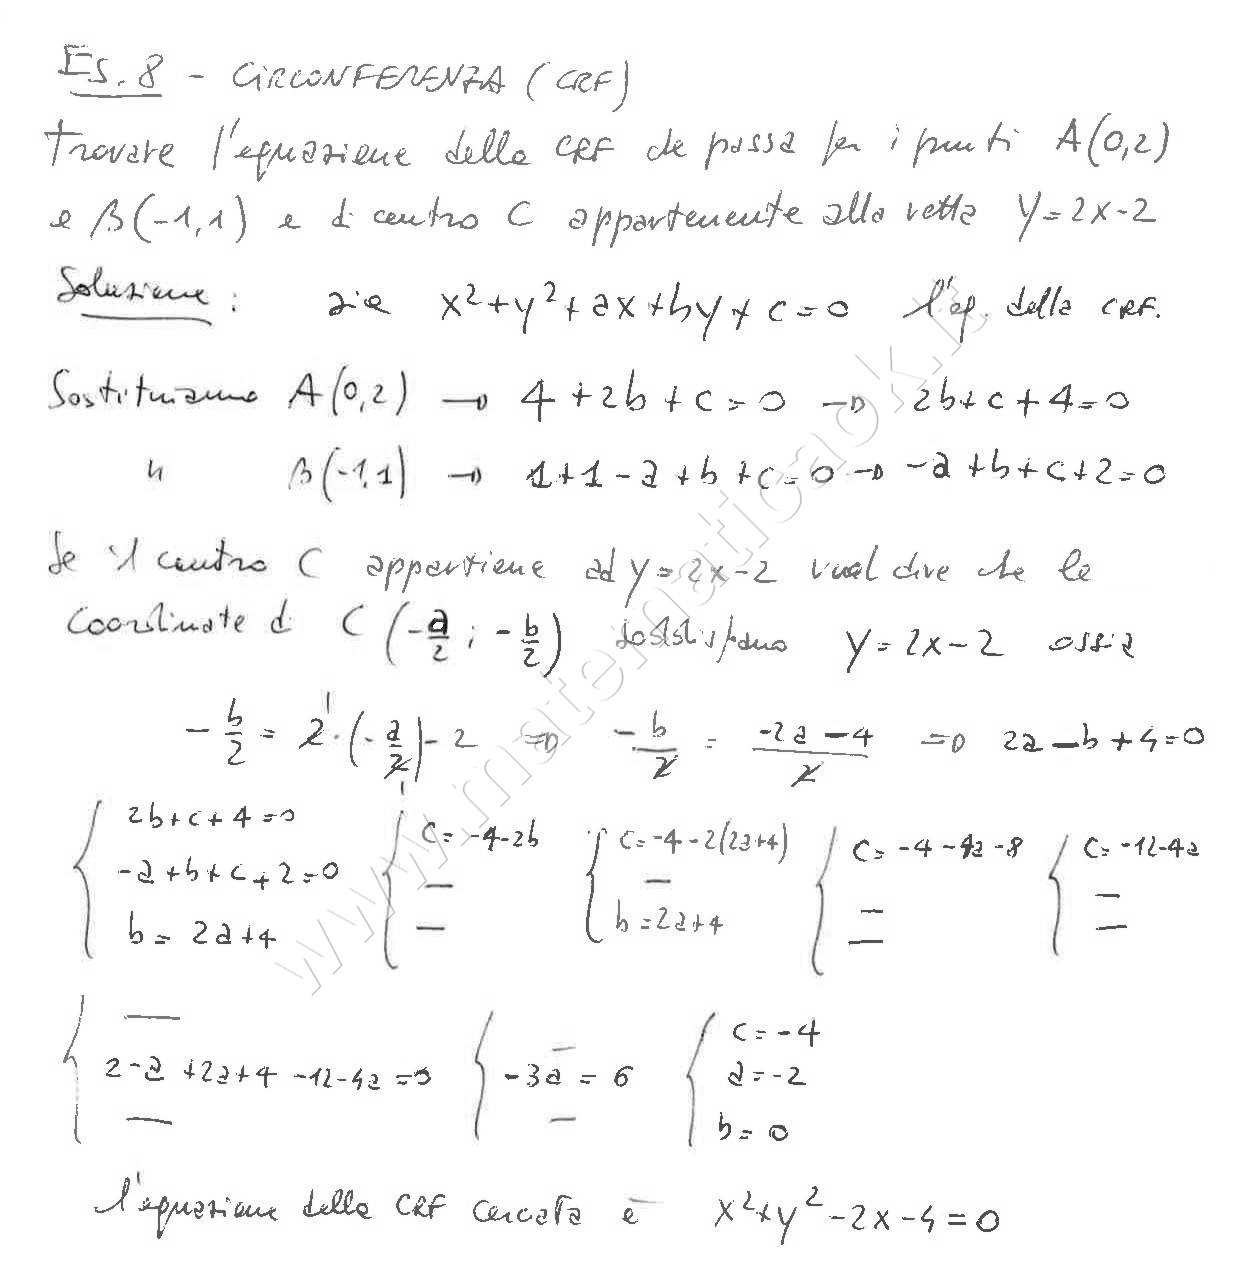 Es. 8 - CIRCONFERENZA (CRF)
Trovare l'equazione della CRF che passa per i punti A(0,2)
e B(-1,1) e di centro C appartenente alla retta y=2x-2
Soluzione: sia x²+y²+ax+by+c=0 l'eq. della CRF.
Sostituiamo A(0,2) → 4+2b+c=0 → 2b+c+4=0
" B(-1,1) → 1+1-a+b+c=0 → -a+b+c+2=0
Se il centro C appartiene ad y=2x-2 vuol dire che le
coordinate di C (-a/2 ; -b/2) soddisfano y=2x-2 ossia
-b/2 = 2·(-a/2)-2 ⇒ -b/2 = (-2a-4)/2 ⇒ 2a-b+4=0
{ 2b+c+4=0 { c=-4-2b { c=-4-2(2a+4) { c=-4-4a-8 { c=-12-4a
-a+b+c+2=0 — — — —
b=2a+4 — b=2a+4 — —
{ — { — { c=-4
2-a+2a+4-12-4a=0 -3a=6 a=-2
— — b=0
l'equazione della CRF cercata è x²+y²-2x-4=0
www.matematicaok.it